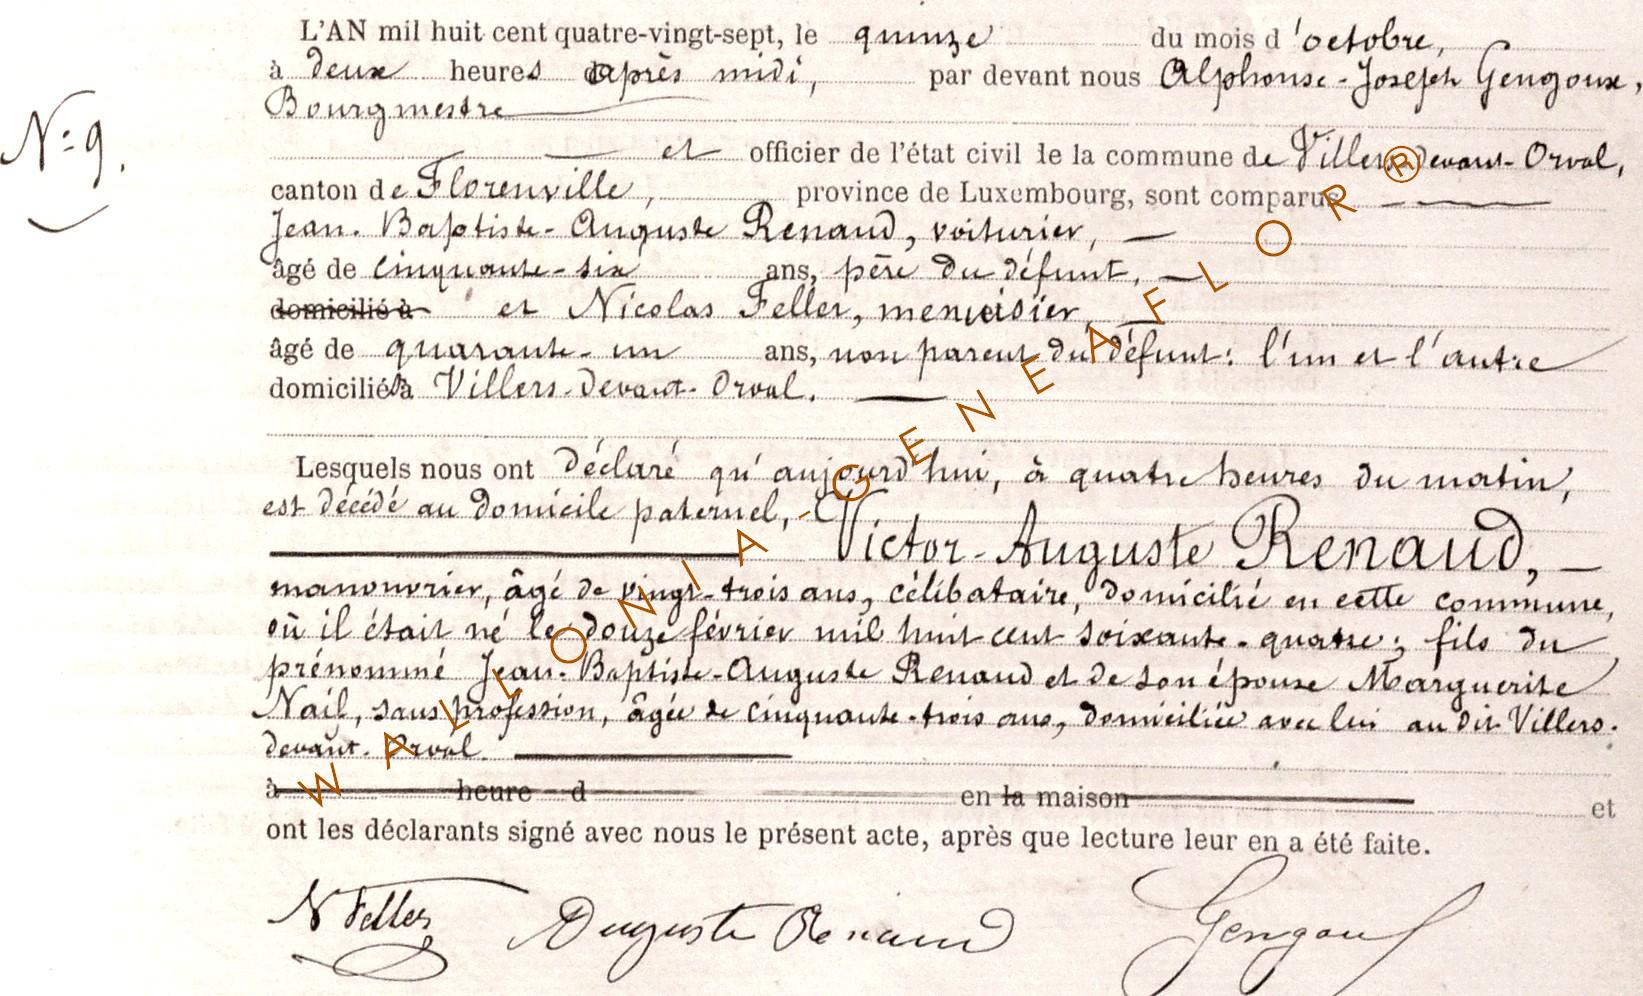 L'AN mil huit cent quatre-vingt-sept, le quinze du mois d'octobre,
à deux heures après midi, par devant nous Alphonse-Joseph Gengoux,
Bourgmestre
N° 9.
et officier de l'état civil de la commune de Villers-devant-Orval,
canton de Florenville, province de Luxembourg, sont comparus
Jean-Baptiste-Auguste Renaud, voiturier,
âgé de cinquante-six ans, père du défunt,
domicilié à et Nicolas Feller, menuisier,
âgé de quarante-un ans, non parent du défunt: l'un et l'autre
domiciliés à Villers-devant-Orval.
Lesquels nous ont déclaré qu'aujourd'hui, à quatre heures du matin,
est décédé au domicile paternel, Victor-Auguste Renaud,
manouvrier, âgé de vingt-trois ans, célibataire, domicilié en cette commune,
où il était né le douze février mil huit cent soixante-quatre; fils du
prénommé Jean-Baptiste-Auguste Renaud et de son épouse Marguerite
Nail, sans profession, âgée de cinquante-trois ans, domiciliée avec lui au dit Villers-
devant-Orval.
à heure d en la maison et
ont les déclarants signé avec nous le présent acte, après que lecture leur en a été faite.
N Feller Auguste Renaud Gengoux
WALLONIA-GENEAFLOR®